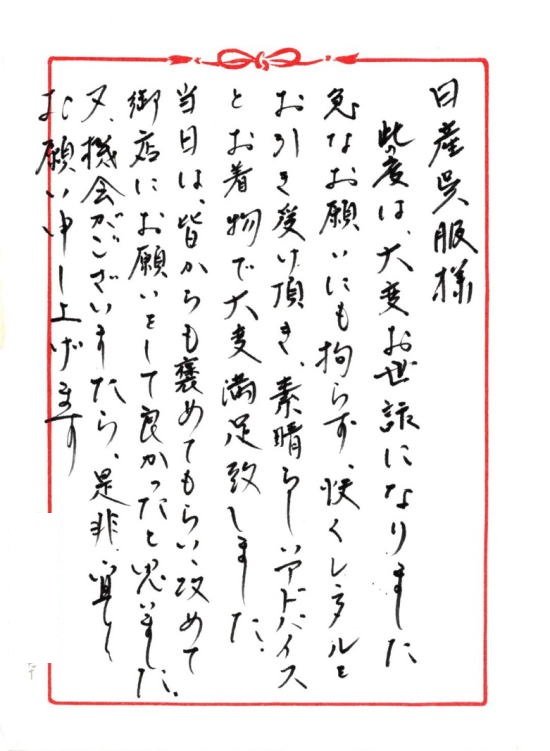 日産呉服様
此の度は、大変お世話になりました
急なお願いにも拘らず、快くレンタルを
お引き受け頂き、素晴らしいアドバイス
とお着物で大変満足致しました。
当日は、皆からも褒めてもらい、改めて
御店にお願いをして良かったと思いました。
又、機会がございましたら、是非、宜しく
お願い申し上げます